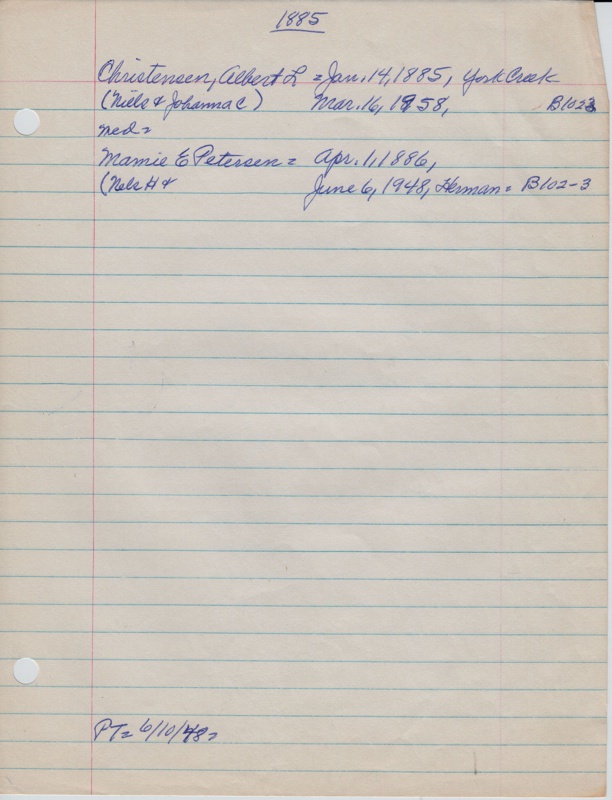 1885
Christensen, Albert L = Jan. 14, 1885, York Creek
(Niels & Johanna C) Mar. 16, 1958, B102-3
med =
Mamie E Petersen = Apr. 1, 1886,
(Nels H & June 6, 1948, Herman = B102-3
PT= 6/10/48=